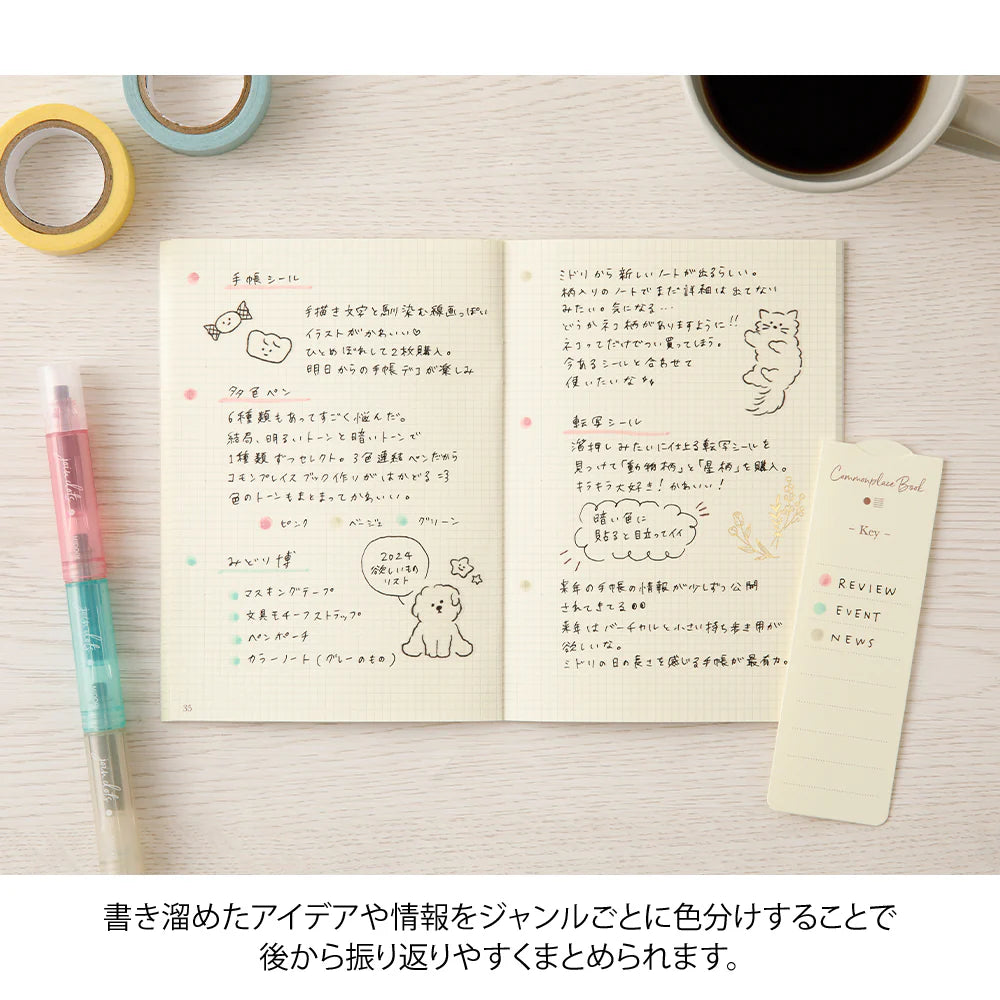 手帳シール
手描き文字と馴染む線画っぽい
イラストがかわいい♡
ひとめぼれして2枚購入。
明日からの手帳デコが楽しみ
多色ペン
6種類もあってすごく悩んだ。
結局、明るいトーンと暗いトーンで
1種類ずつセレクト。3色連結ペンだから
コモンプレイスブック作りがはかどる
色のトーンもまとまってかわいい。
ピンク ベージュ グリーン
みどり博
2024
欲しいもの
リスト
マスキングテープ
文具モチーフストラップ
ペンポーチ
カラーノート(グレーのもの)
35
ミドリから新しいノートが出るらしい。
柄入りのノートでまだ詳細は出てない
みたい。気になる…
どうかネコ柄がありますように!!
ネコってだけでつい買ってしまう。
今あるシールと合わせて
使いたいな
転写シール
箔押しみたいに仕上る転写シールを
見つけて「動物柄」と「星柄」を購入。
キラキラ大好き!かわいい!
暗い色に
貼ると目立ってイイ
来年の手帳の情報が少しずつ公開
されてきてる
来年はバーチカルと小さい持ち歩き用が
欲しいな。
ミドリの日の長さを感じる手帳が最有力。
Commonplace Book
- Key -
REVIEW
EVENT
NEWS
join dots
join dots
join dots
書き溜めたアイデアや情報をジャンルごとに色分けすることで
後から振り返りやすくまとめられます。